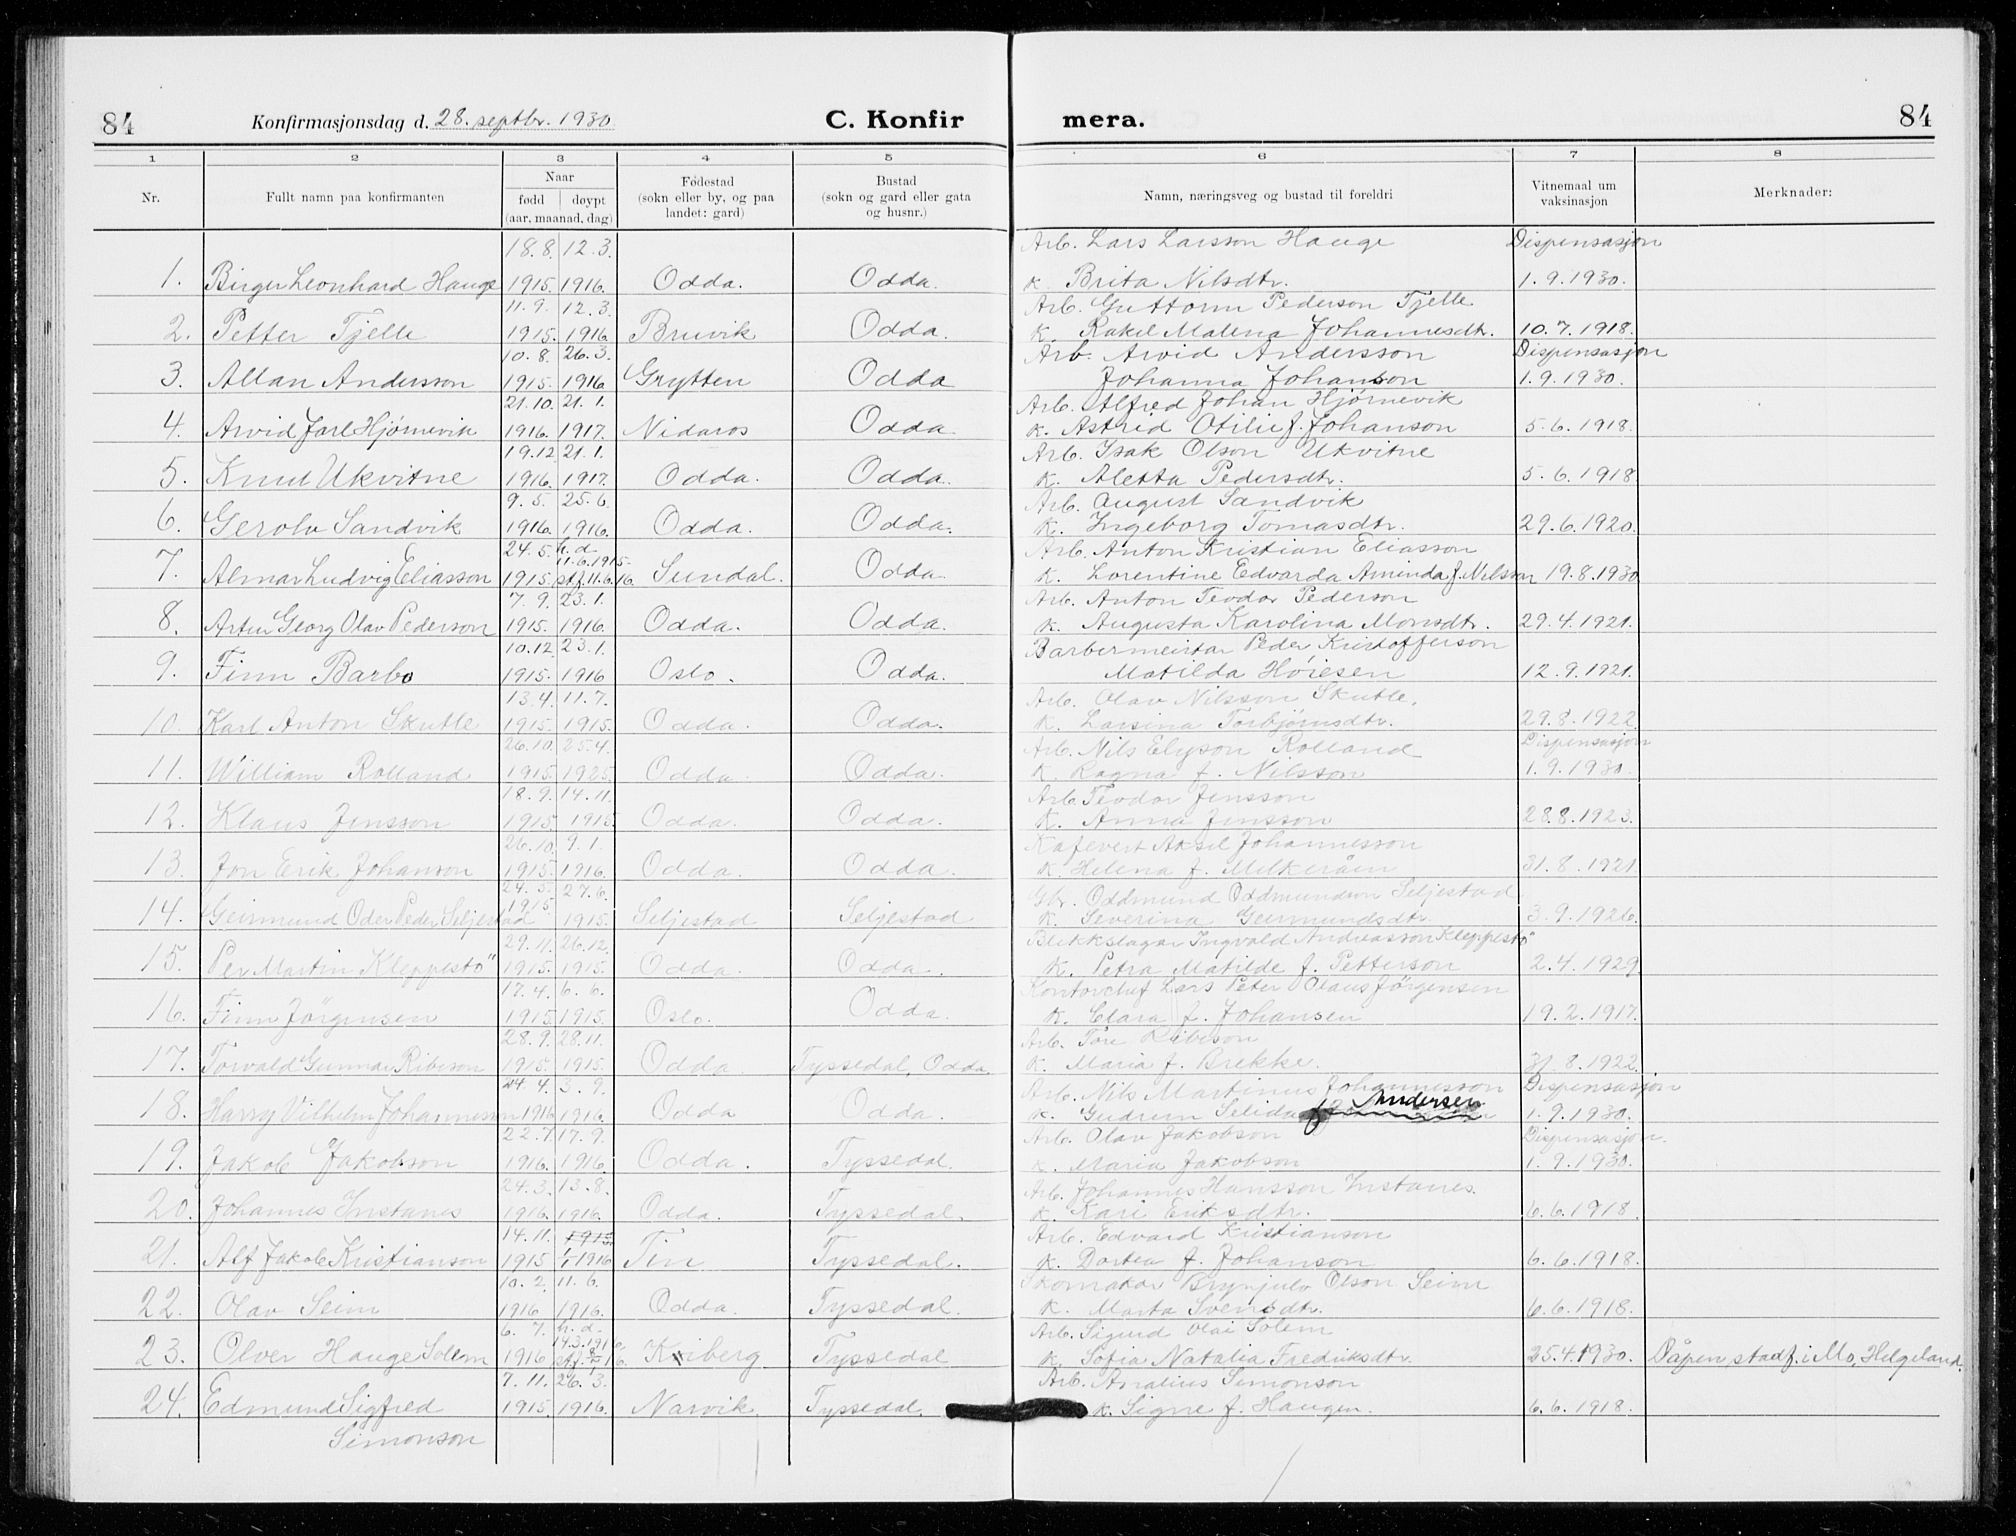 84 Konfirmasjonsdag d. 28. septbr. 1930 C. Konfir mera. 84
1 2 3 4 5 6 7 8
Nr. Fullt namn paa konfirmanten Naar født døypt (aar, maanad, dag) Fødestad (sokn eller by, og paa landet: gard) Bustad (sokn og gard eller gata og husnr.) Namn, næringsveg og bustad til foreldri Vitnemaal um vaksinasjon Merknader:
18.8. 12.3. Arb. Lars Larsson Hauge Dispensasjon
1. Birger Leonhard Hauge 1915. 1916. Odda. Odda. K. Brita Nilsdtr. 1.9.1930.
11.9. 12.3. Arb. Guttorm Pederson Tjelle
2. Petter Tjelle 1915. 1916. Bruvik Odda. K. Rakel Malena Johannesdtr. 10.7.1918.
10.8. 26.3. Arb. Arvid Andersson Dispensasjon
3. Allan Andersson 1915. 1916 Grytten Odda Johanna Johanson 1.9.1930.
21.10. 21.1. Arb. Alfred Johan Hjørnevik
4. Arvid Jarl Hjørnevik 1916. 1917. Nidaros Odda. K. Astrid Otilie f. Johanson 5.6.1918.
19.12 21.1. Arb. Isak Olson Ukvitne
5. Knut Ukvitne 1916. 1917. Odda. Odda. K. Aletta Pedersdtr. 5.6.1918
9.5. 25.6. Arb. August Sandvik
6. Gerolv Sandvik 1916. 1916. Odda. Odda. K. Ingeborg Tomasdtr. 29.6.1920.
24.5. h.d. 11.6.1915. Arb. Anton Kristian Eliasson
7. Almar Ludvig Eliasson 1915. stf. 11.6.16 Sundal. Odda. K. Lorentine Edvarda Aminda f. Nilsson 19.8.1930
7.9. 23.1. Arb. Anton Teodor Pederson
8. Artur Georg Olav Pederson 1915. 1916. Odda. Odda. K. Augusta Karolina Monsdtr. 29.4.1921.
10.12. 23.1. Barbermeistar Peder Kristofferson
9. Finn Barbo 1915. 1916 Oslo. Odda. Matilda Høiesen 12.9.1921.
13.4. 11.7. Arb. Olav Nilsson Skutle.
10. Karl Anton Skutle 1915. 1915. Odda. Odda. K. Larsina Torbjørnsdtr. 29.8.1922
26.10. 25.4. Arb. Nils Elyson Rolland Dispensasjon
11. William Rolland 1915. 1925. Odda. Odda. K. Ragna f. Nilsson 1.9.1930.
18.9. 14.11. Arb. Teodor Jensson
12. Klaus Jensson 1915. 1915. Odda. Odda. K. Anna Jensson 28.8.1923.
26.10. 9.1. Kafevert Aksel Johannesson
13. Jon Erik Johanson 1915. 1916. Odda. Odda. K. Helena f. Melkeråen 31.8.1921
24.5. 27.6. Gbr. Oddmund Oddmundson Seljestad
14. Geirmund Oder Peder Seljestad 1915 1915. Seljestad Seljestad K. Severina Geirmundsdtr. 3.9.1926.
29.11. 26.12. Blekkslagar Ingvald Andreasson Kleppestö
15. Per Martin Kleppestö 1915. 1915. Odda. Odda. K. Petra Matilde f. Petterson 2.4.1929
17.4. 6.6. Kontorchef Lars Peter Olaus Jörgensen
16. Finn Jörgensen 1915. 1915. Oslo. Odda. K. Clara f. Johansen 19.2.1917.
28.9. 28.11. Arb. Tore Ribeson
17. Torvald Gunnar Ribeson 1915. 1915. Odda Tyssedal, Odda. K. Maria f. Brekke. 31.8.1922
24.4. 3.9. Arb. Nils Martinus Johannesson Dispensasjon
18. Harry Vilhelm Johannesson 1916 1916. Odda Odda. K. Gudrun Selida Andersen 1.9.1930.
22.7. 17.9. Arb. Olav Jakobson Dispensasjon.
19. Jakob Jakobson 1916. 1916. Odda. Tyssedal. K. Maria Jakobson 1.9.1930.
24.3. 13.8. Arb. Johannes Hansson Instanes.
20. Johannes Instanes 1916. 1916. Odda. Tyssedal. K. Kari Eriksdtr. 6.6.1918.
14.11. 1915. Arb. Edvard Kristianson
21. Alf Jakob Kristianson 1915 1/1 1916 Tin Tyssedal. K. Dortea f. Johanson 6.6.1918.
10.2. 11.6. Skomakar Brynjulv Olson Seim
22. Olav Seim 1916. 1916. Odda. Tyssedal. K. Marta Svensdtr. 6.6.1918.
6.7. h.d. 14.3.1916. Arb. Sigurd Olai Solem
23. Olver Hauge Solem 1916 stf. Kiberg Tyssedal K. Sofia Natalia Fredriksdtr. 25.4.1930. Dåpen stadf. i Mo, Helgeland.
7.11. 26.3. Arb. Analius Simonson
24. Edmund Sigfred 1915. 1916. Narvik Tyssedal. K. Signe f. Haugen. 6.6.1918.
Simonson